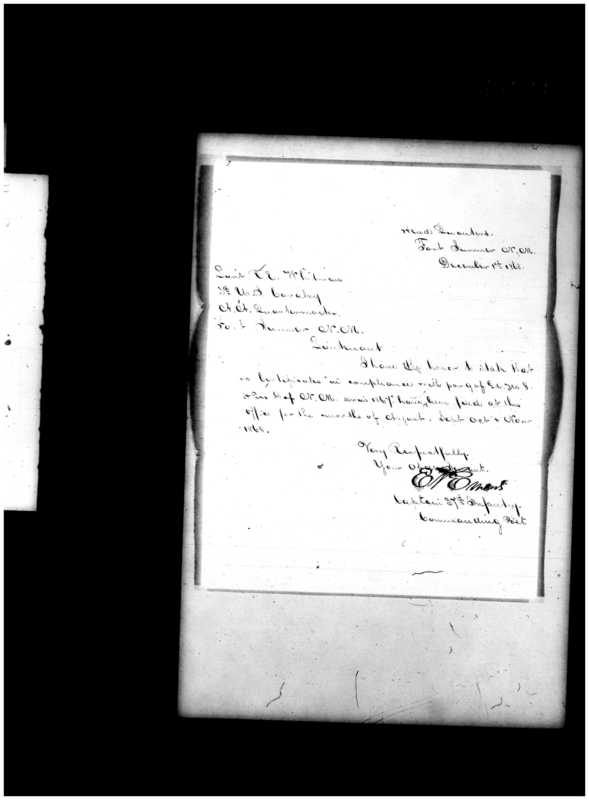 Head Quarters.
Fort Sumner N.M.
December 1st 1868.
Lieut Whitman
U.S. Cavalry
Quartermaster
Fort Sumner N.M.
Lieutenant
I have the honor to state that
no Certificates in compliance with par 9 of No
Dist of N.M. have been filed at this
office for the months of August, Sept Oct & Nov
1868.
Very Respectfully
Your Obt Servant.
Captain 37th Infantry.
Commanding Post